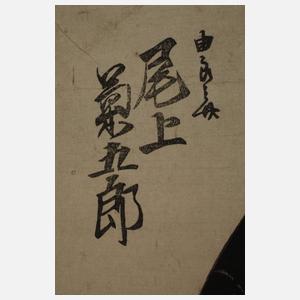 由良之助
尾上
菊五郎